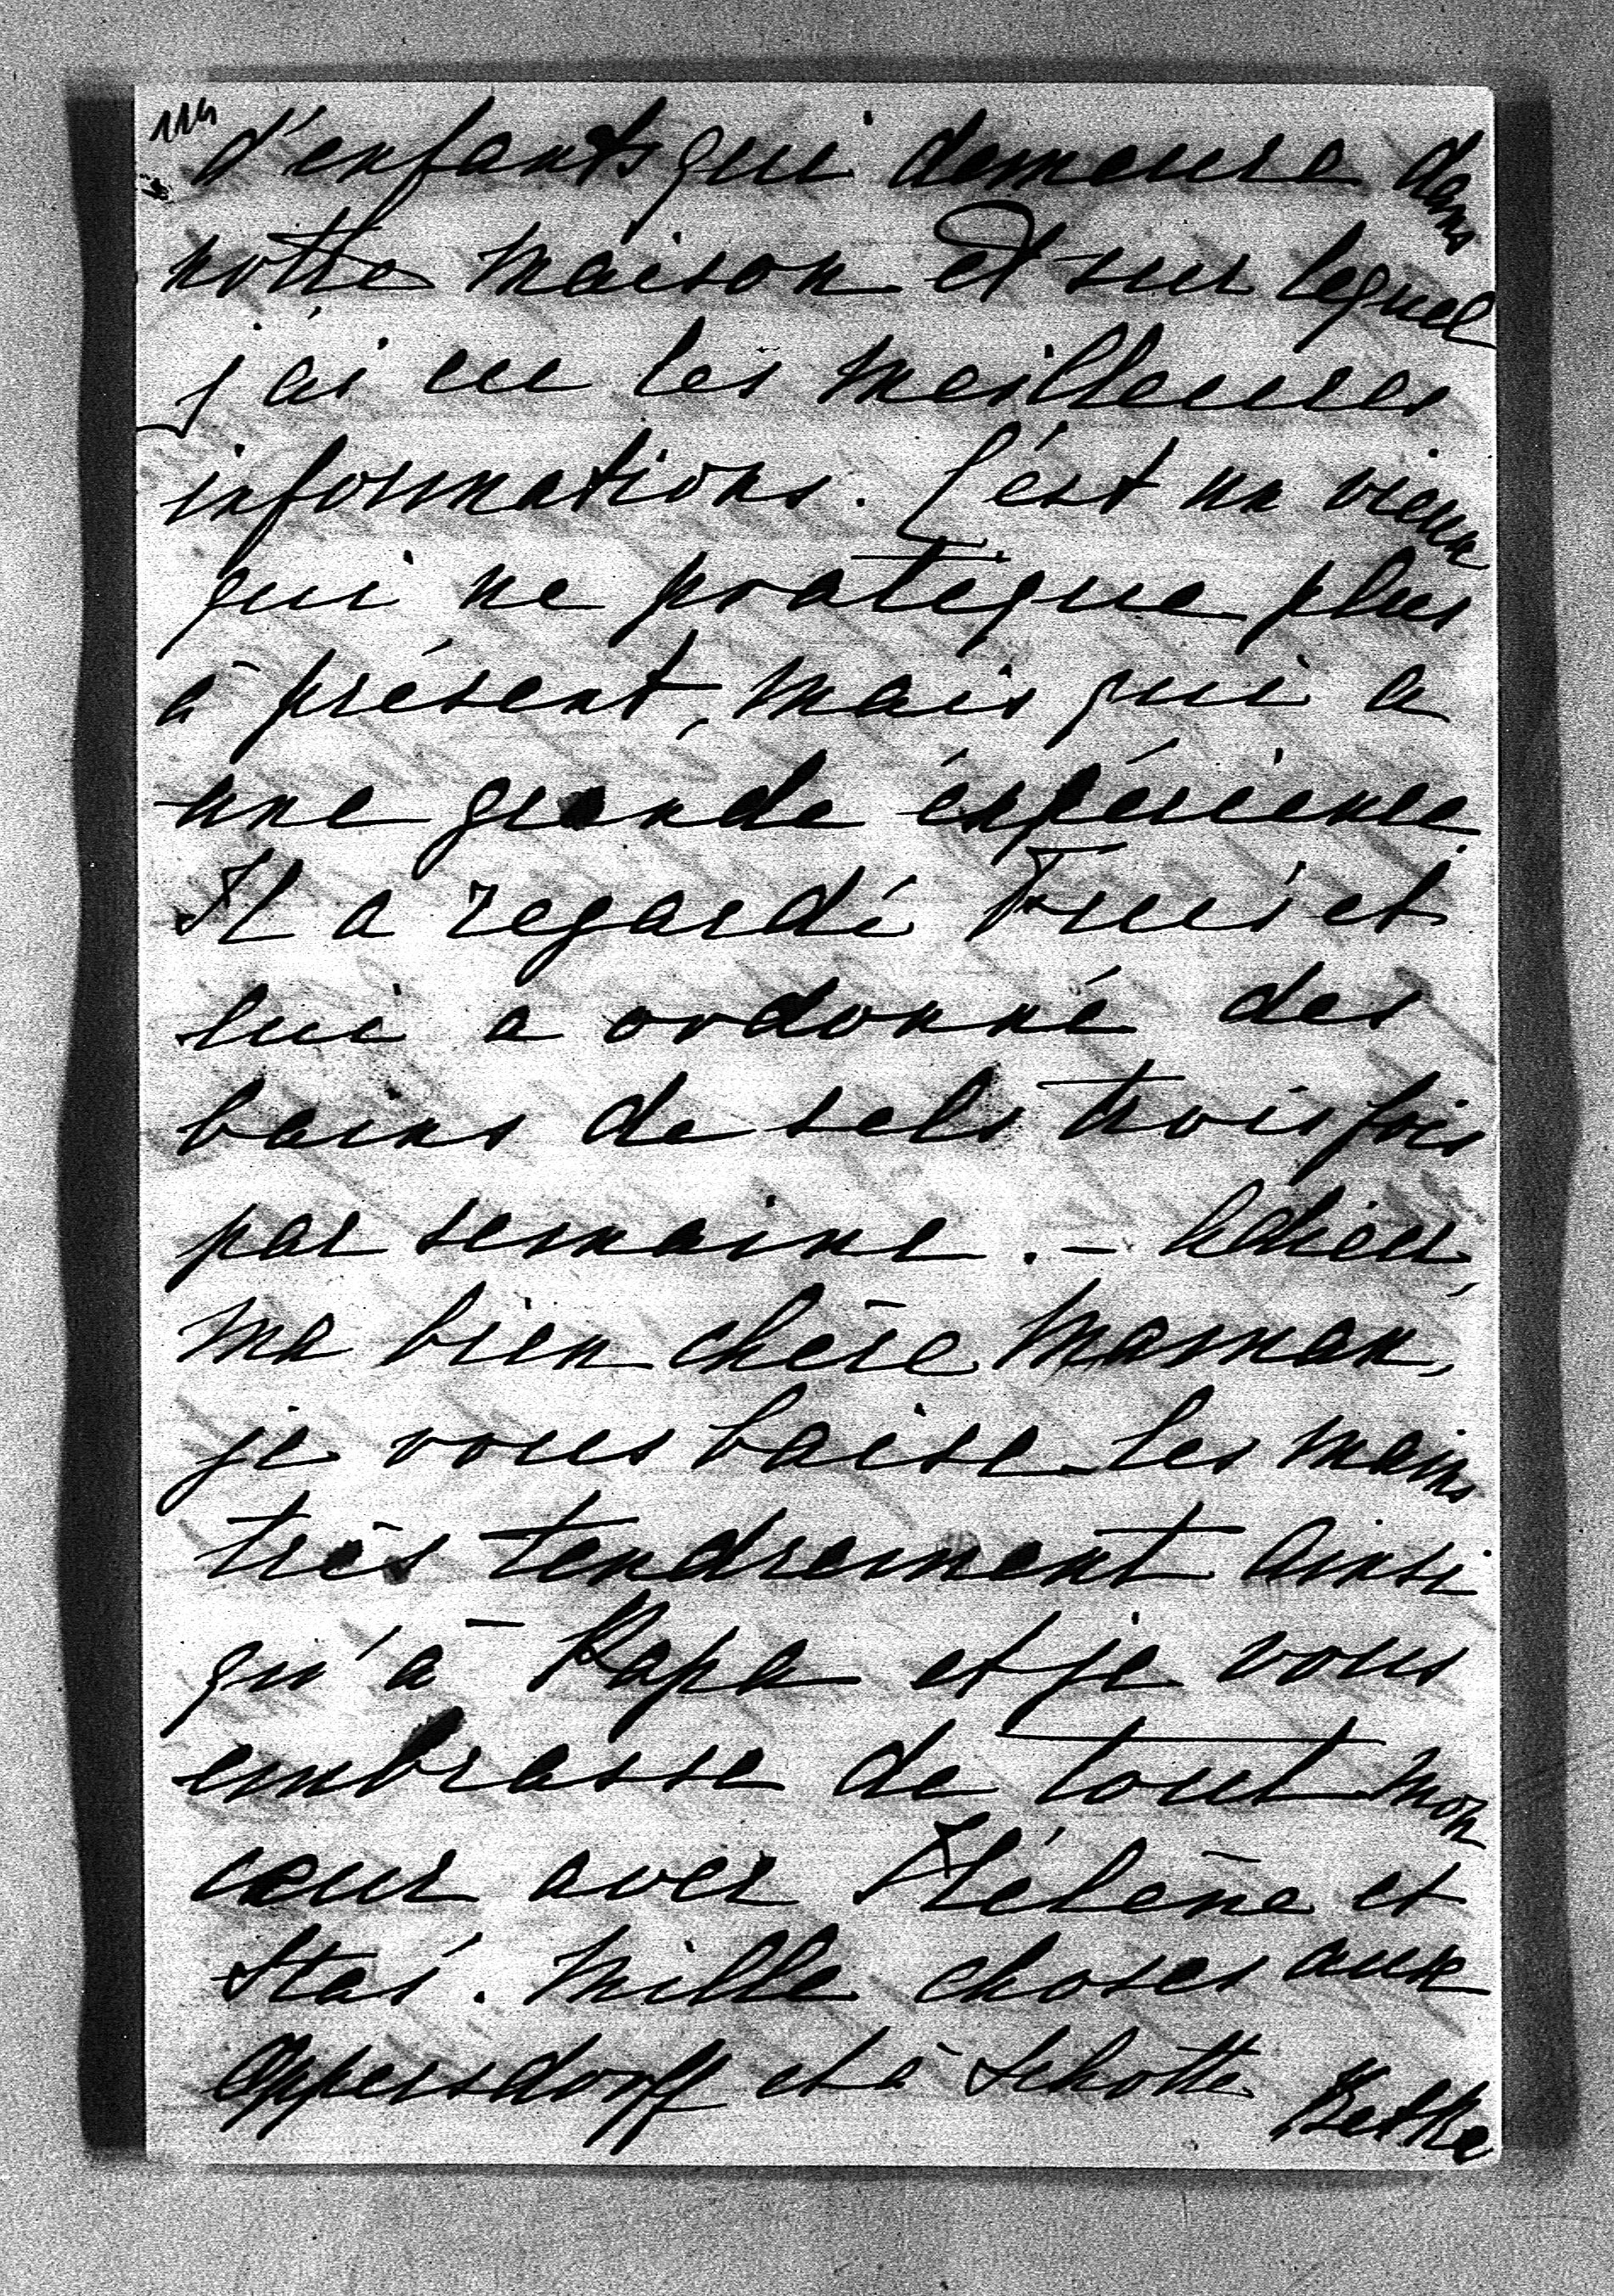 114
d'enfants qui demeure dans
notre maison et sur lequel
j'ai eu les meilleures
informations. C'est un vieux
qui ne pratique plus
à présent, mais qui a
une grande éxpérience
Il a regardé et
lui a ordonné des
bains de sels trois fois
par semaine. – Adieu,
ma bien chère Maman,
je vous baise les mains
très tendrement ainsi
qu'à Papa et je vous
embrasse de tout mon
cœur avec Hélène et
Stas. Mille choses aux
Oppersdorff et à Schotte
Betka